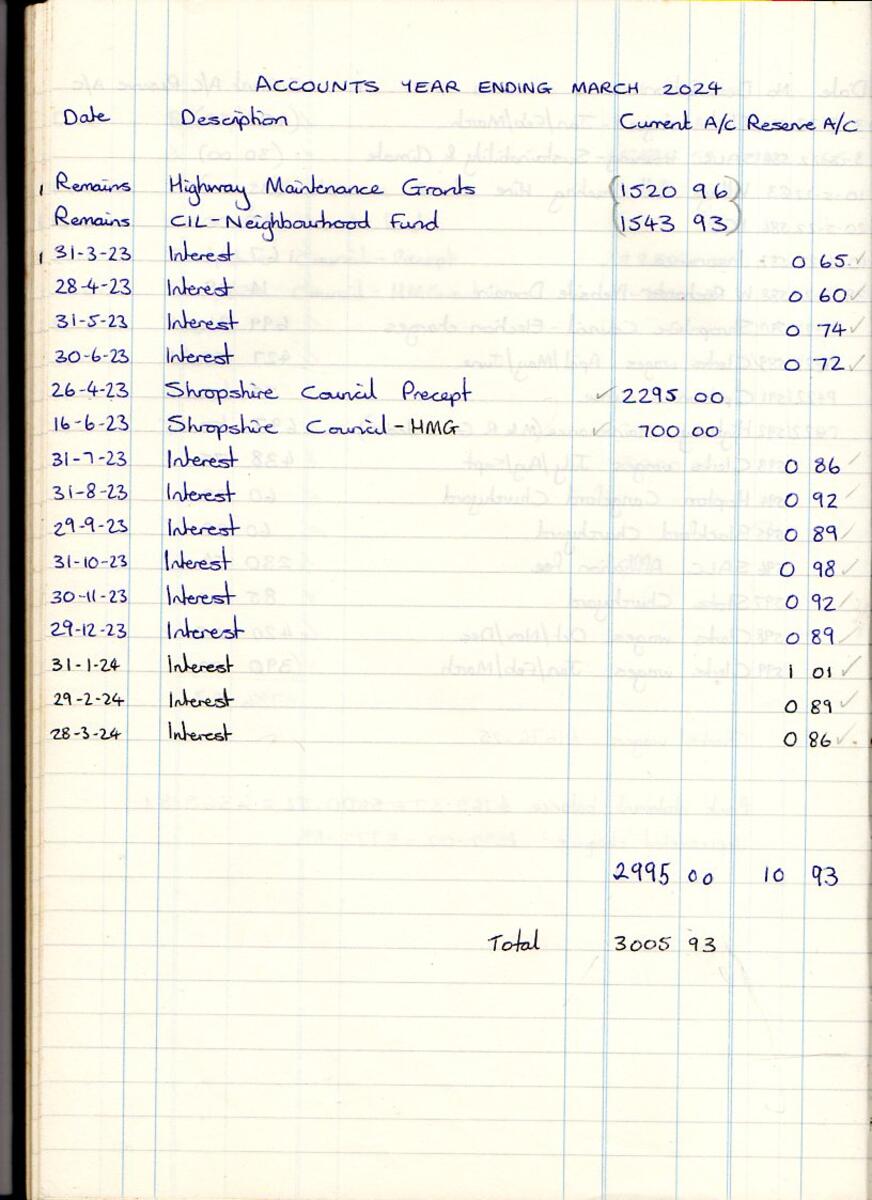 ACCOUNTS YEAR ENDING MARCH 2024
Date Description Current A/C Reserve A/C
Remains Highway Maintenance Grants (1520 96)
Remains CIL-Neighbourhood Fund (1543 93)
31-3-23 Interest 0 65 ✓
28-4-23 Interest 0 60 ✓
31-5-23 Interest 0 74 ✓
30-6-23 Interest 0 72 ✓
26-4-23 Shropshire Council Precept ✓ 2295 00
16-6-23 Shropshire Council-HMG ✓ 700 00
31-7-23 Interest 0 86 ✓
31-8-23 Interest 0 92 ✓
29-9-23 Interest 0 89 ✓
31-10-23 Interest 0 98 ✓
30-11-23 Interest 0 92 ✓
29-12-23 Interest 0 89 ✓
31-1-24 Interest 1 01 ✓
29-2-24 Interest 0 89 ✓
28-3-24 Interest 0 86 ✓
2995 00 10 93
Total 3005 93